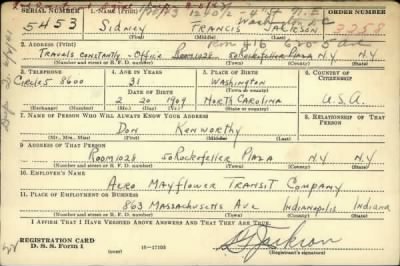 SERIAL NUMBER 1. NAME (Print) ORDER NUMBER
5453 Sidney FRANCIS JACKSON 2258
(First) (Middle) (Last)
2. ADDRESS (Print)
TRAVELS CONSTANTLY - OFFICE ROOM 1028 50 ROCKEFELLER PLAZA N.Y. N.Y.
(Number and street or R. F. D. number) (Town) (County) (State)
3. TELEPHONE 4. AGE IN YEARS 5. PLACE OF BIRTH 6. COUNTRY OF CITIZENSHIP
CIRCLE 5 8600 31 WASHINGTON
DATE OF BIRTH (Town or county)
2 20 1909 NORTH CAROLINA U.S.A.
(Exchange) (Number) (Mo.) (Day) (Yr.) (State or country)
7. NAME OF PERSON WHO WILL ALWAYS KNOW YOUR ADDRESS 8. RELATIONSHIP OF THAT PERSON
DON KENWORTHY
(Mr., Mrs., Miss) (First) (Middle) (Last)
9. ADDRESS OF THAT PERSON
ROOM 1028 50 ROCKEFELLER PLAZA N.Y. N.Y.
(Number and street or R. F. D. number) (Town) (County) (State)
10. EMPLOYER'S NAME
AERO MAYFLOWER TRANSIT COMPANY
11. PLACE OF EMPLOYMENT OR BUSINESS
863 MASSACHUSETTS AVE INDIANAPOLIS INDIANA
(Number and street or R. F. D. number) (Town) (County) (State)
I AFFIRM THAT I HAVE VERIFIED ABOVE ANSWERS AND THAT THEY ARE TRUE.
REGISTRATION CARD
D. S. S. Form 1 16-17105 S F Jackson
(Registrant's signature)